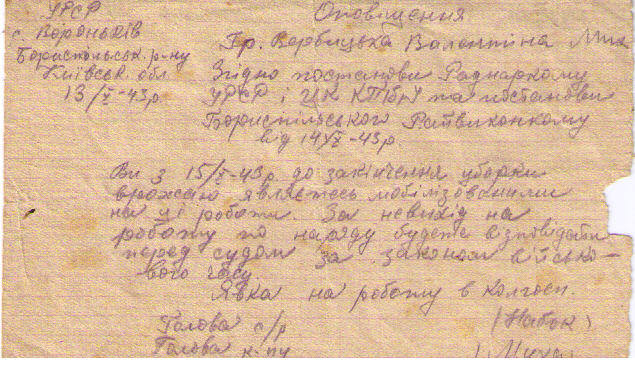 УРСР
с. Вороньків
Бориспольськ. р-ну
Київськ. обл
13/X-43р.
Оповіщення
Гр. Вербицька Валентина Мих
Згідно постанови Раднаркому
УРСР і ЦК КП(б)У та постанови
Бориспільського Райвиконкому
від 14/X-43р.
Ви з 15/X-43р. до закінчення уборки
врожаю являєтесь мобілізованими
на ці роботи. За невихід на
роботу по наряду будете відповідати
перед судом за законом військо-
вого часу.
Явка на роботу в колгосп.
Голова с/р (Набок)
Голова к-пу